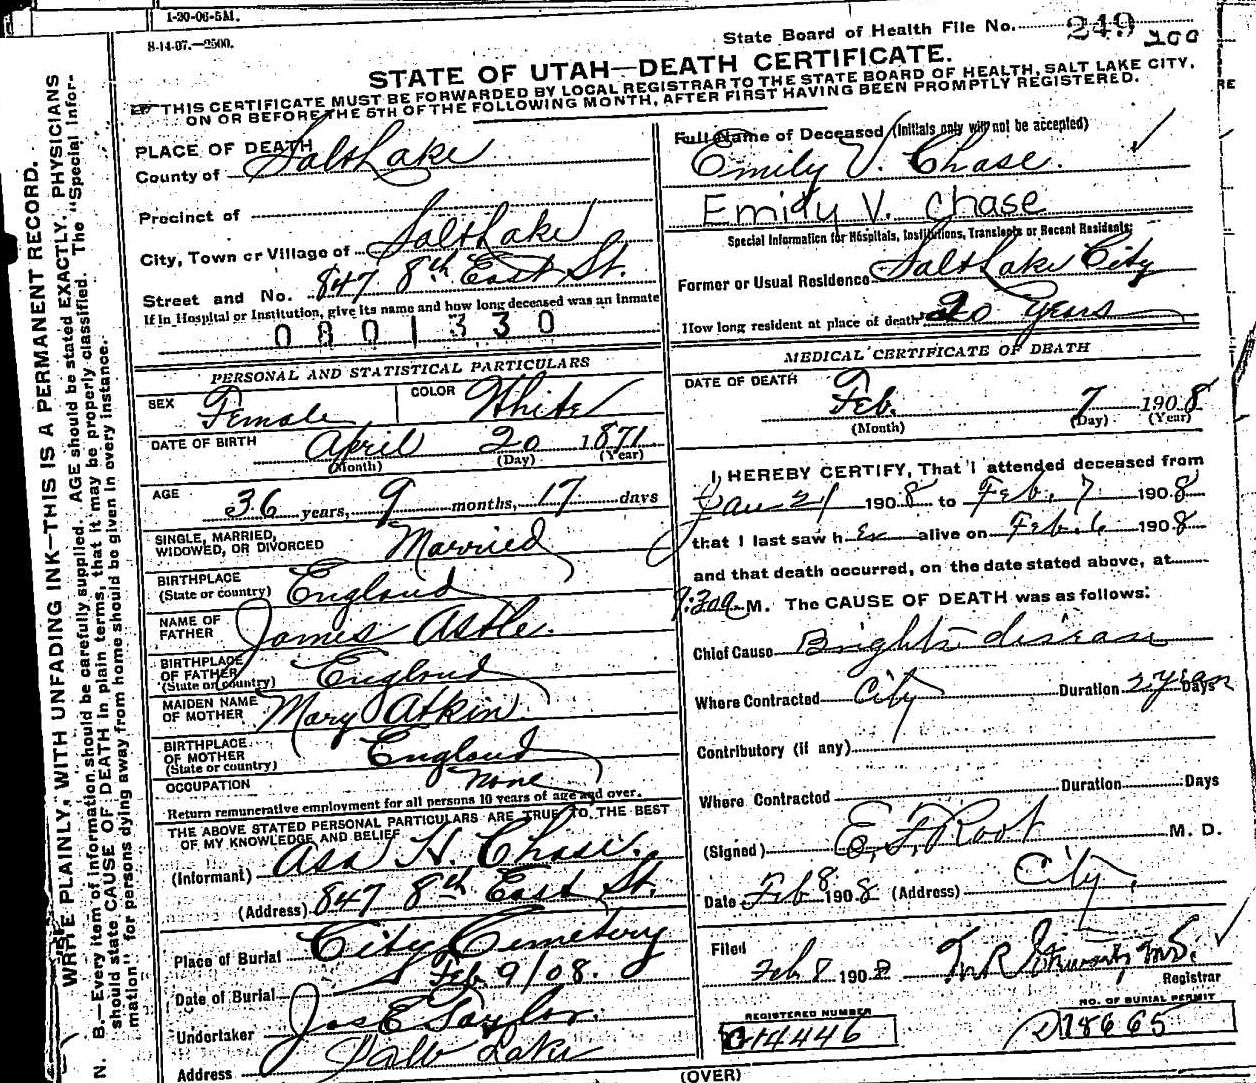 1-20-06-5M.
8-14-07.—2500.
State Board of Health File No. 249 200
STATE OF UTAH—DEATH CERTIFICATE.
THIS CERTIFICATE MUST BE FORWARDED BY LOCAL REGISTRAR TO THE STATE BOARD OF HEALTH, SALT LAKE CITY,
ON OR BEFORE THE 5TH OF THE FOLLOWING MONTH, AFTER FIRST HAVING BEEN PROMPTLY REGISTERED.
WRITE PLAINLY, WITH UNFADING INK—THIS IS A PERMANENT RECORD.
N. B.—Every item of information should be carefully supplied. AGE should be stated EXACTLY. PHYSICIANS
should state CAUSE OF DEATH in plain terms, that it may be properly classified. The "Special Infor-
mation" for persons dying away from home should be given in every instance.
PLACE OF DEATH
County of Salt Lake
Precinct of
City, Town or Village of Salt Lake
Street and No. 847 8th East St.
If in Hospital or Institution, give its name and how long deceased was an inmate
0801330
PERSONAL AND STATISTICAL PARTICULARS
SEX Female COLOR White
DATE OF BIRTH April 20 1871
(Month) (Day) (Year)
AGE 36 years, 9 months, 17 days
SINGLE, MARRIED,
WIDOWED, OR DIVORCED Married
BIRTHPLACE
(State or country) England
NAME OF
FATHER James Astle.
BIRTHPLACE
OF FATHER
(State or country) England
MAIDEN NAME
OF MOTHER Mary Atkin.
BIRTHPLACE
OF MOTHER
(State or country) England
OCCUPATION None
Return remunerative employment for all persons 10 years of age and over.
THE ABOVE STATED PERSONAL PARTICULARS ARE TRUE TO THE BEST
OF MY KNOWLEDGE AND BELIEF
(Informant) Asa H. Chase.
(Address) 847 8th East St.
Place of Burial City Cemetery
Date of Burial Feb 9/08.
Undertaker Jos E Taylor.
Address Salt Lake
Full Name of Deceased (Initials only will not be accepted)
Emily V. Chase.
Emily V. Chase
Special Information for Hospitals, Institutions, Transients or Recent Residents:
Former or Usual Residence Salt Lake City
How long resident at place of death 20 Years
MEDICAL CERTIFICATE OF DEATH
DATE OF DEATH Feb. 7 1908
(Month) (Day) (Year)
I HEREBY CERTIFY, That I attended deceased from
Jan 21 1908 to Feb. 7 1908
that I last saw h er alive on Feb. 6 1908
and that death occurred, on the date stated above, at
M. The CAUSE OF DEATH was as follows:
Chief Cause Brights disease
Where Contracted City Duration 2 years Days
Contributory (if any)
Where Contracted Duration Days
(Signed) E. F. Root M. D.
Date Feb 8 1908 (Address) City.
Filed
Feb 8 1908
Registrar
REGISTERED NUMBER
14446
NO. OF BURIAL PERMIT
18665
(OVER)